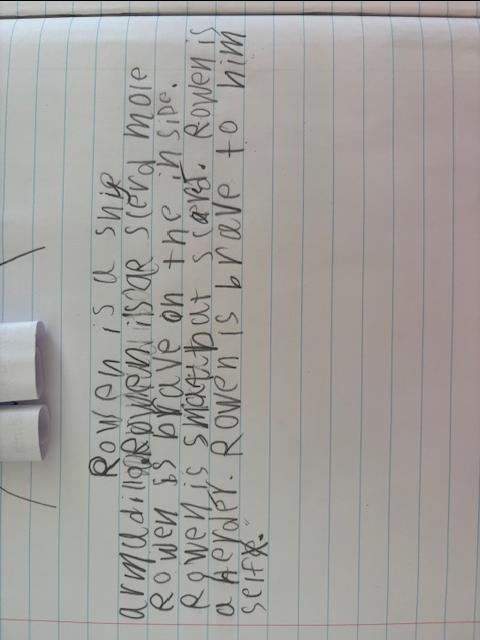 Rowen is a shye
armadillo. Rowen is ae scerd mole
Rowen is brave on the in side.
Rowen is smart but scard. Rowen is
a herder. Rowen is brave to him
self.